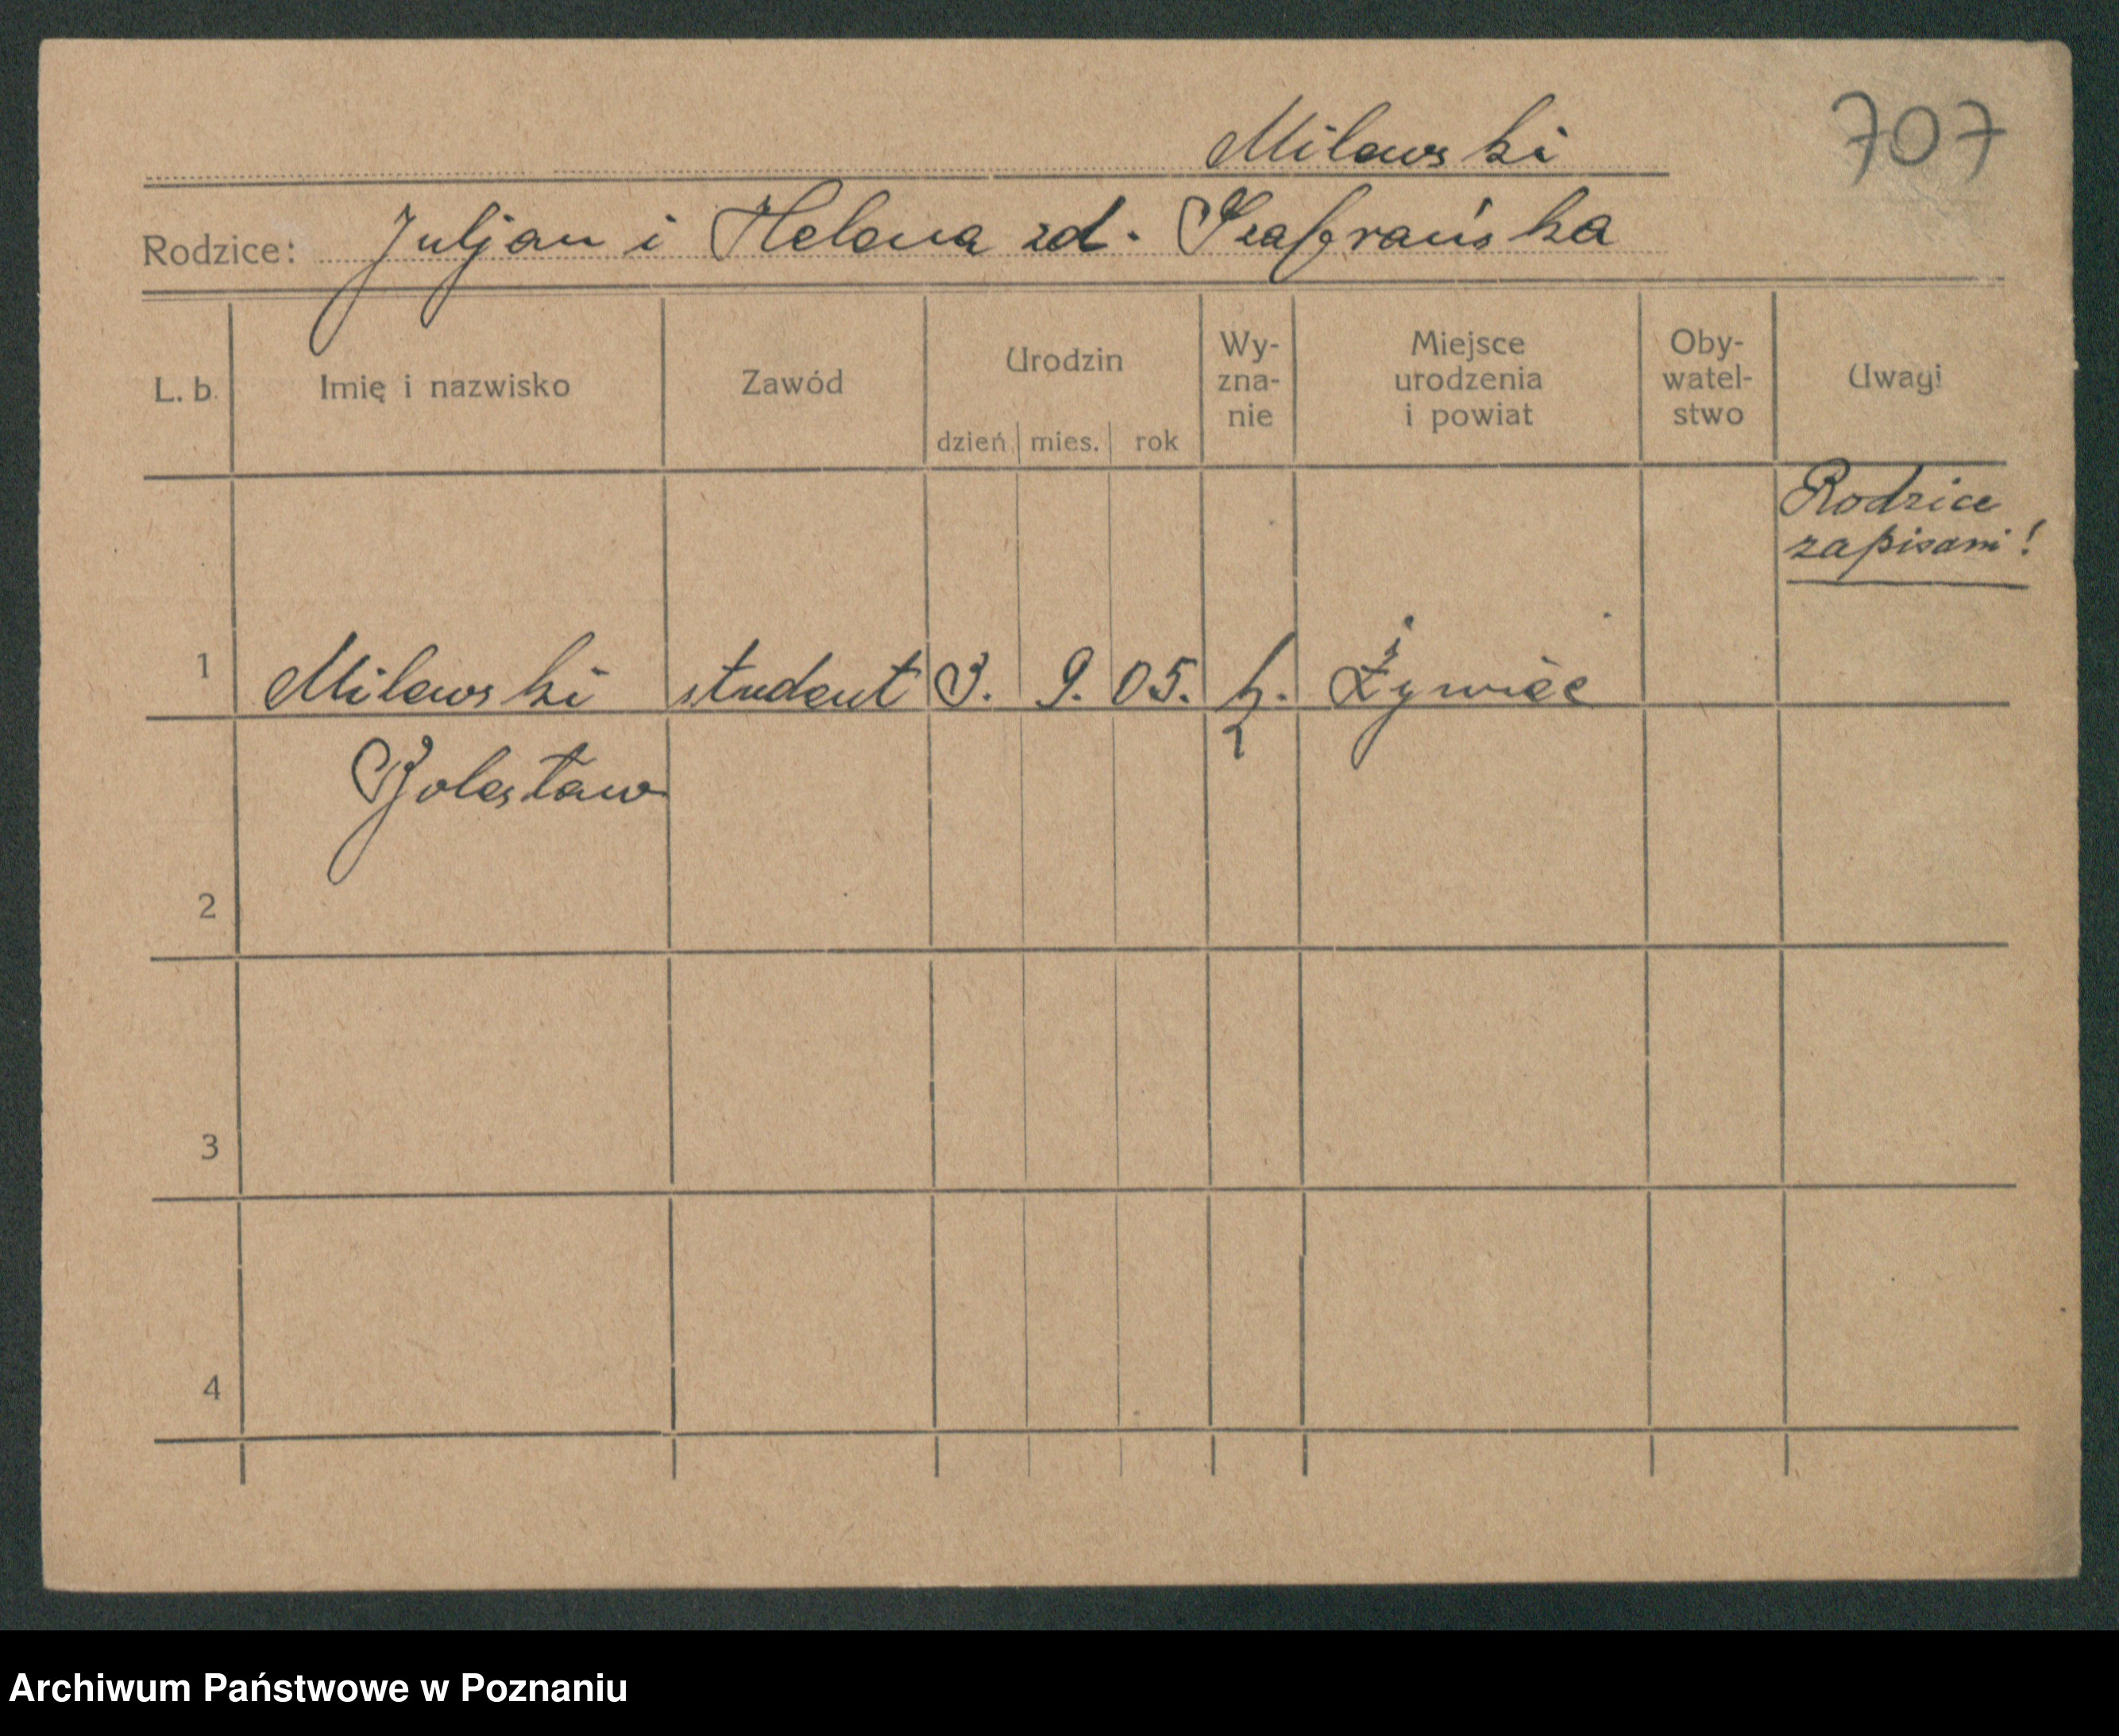 Milewski
707
Rodzice: Juljan i Helena zd. Szafrańska
L. b. Imię i nazwisko Zawód Urodzin dzień mies. rok Wy-zna-nie Miejsce urodzenia i powiat Oby-watel-stwo Uwagi
Rodzice
zapisani!
1 Milewski student 3. 9. 05. k. Żywiec
Bolesław
2
3
4
Archiwum Państwowe w Poznaniu